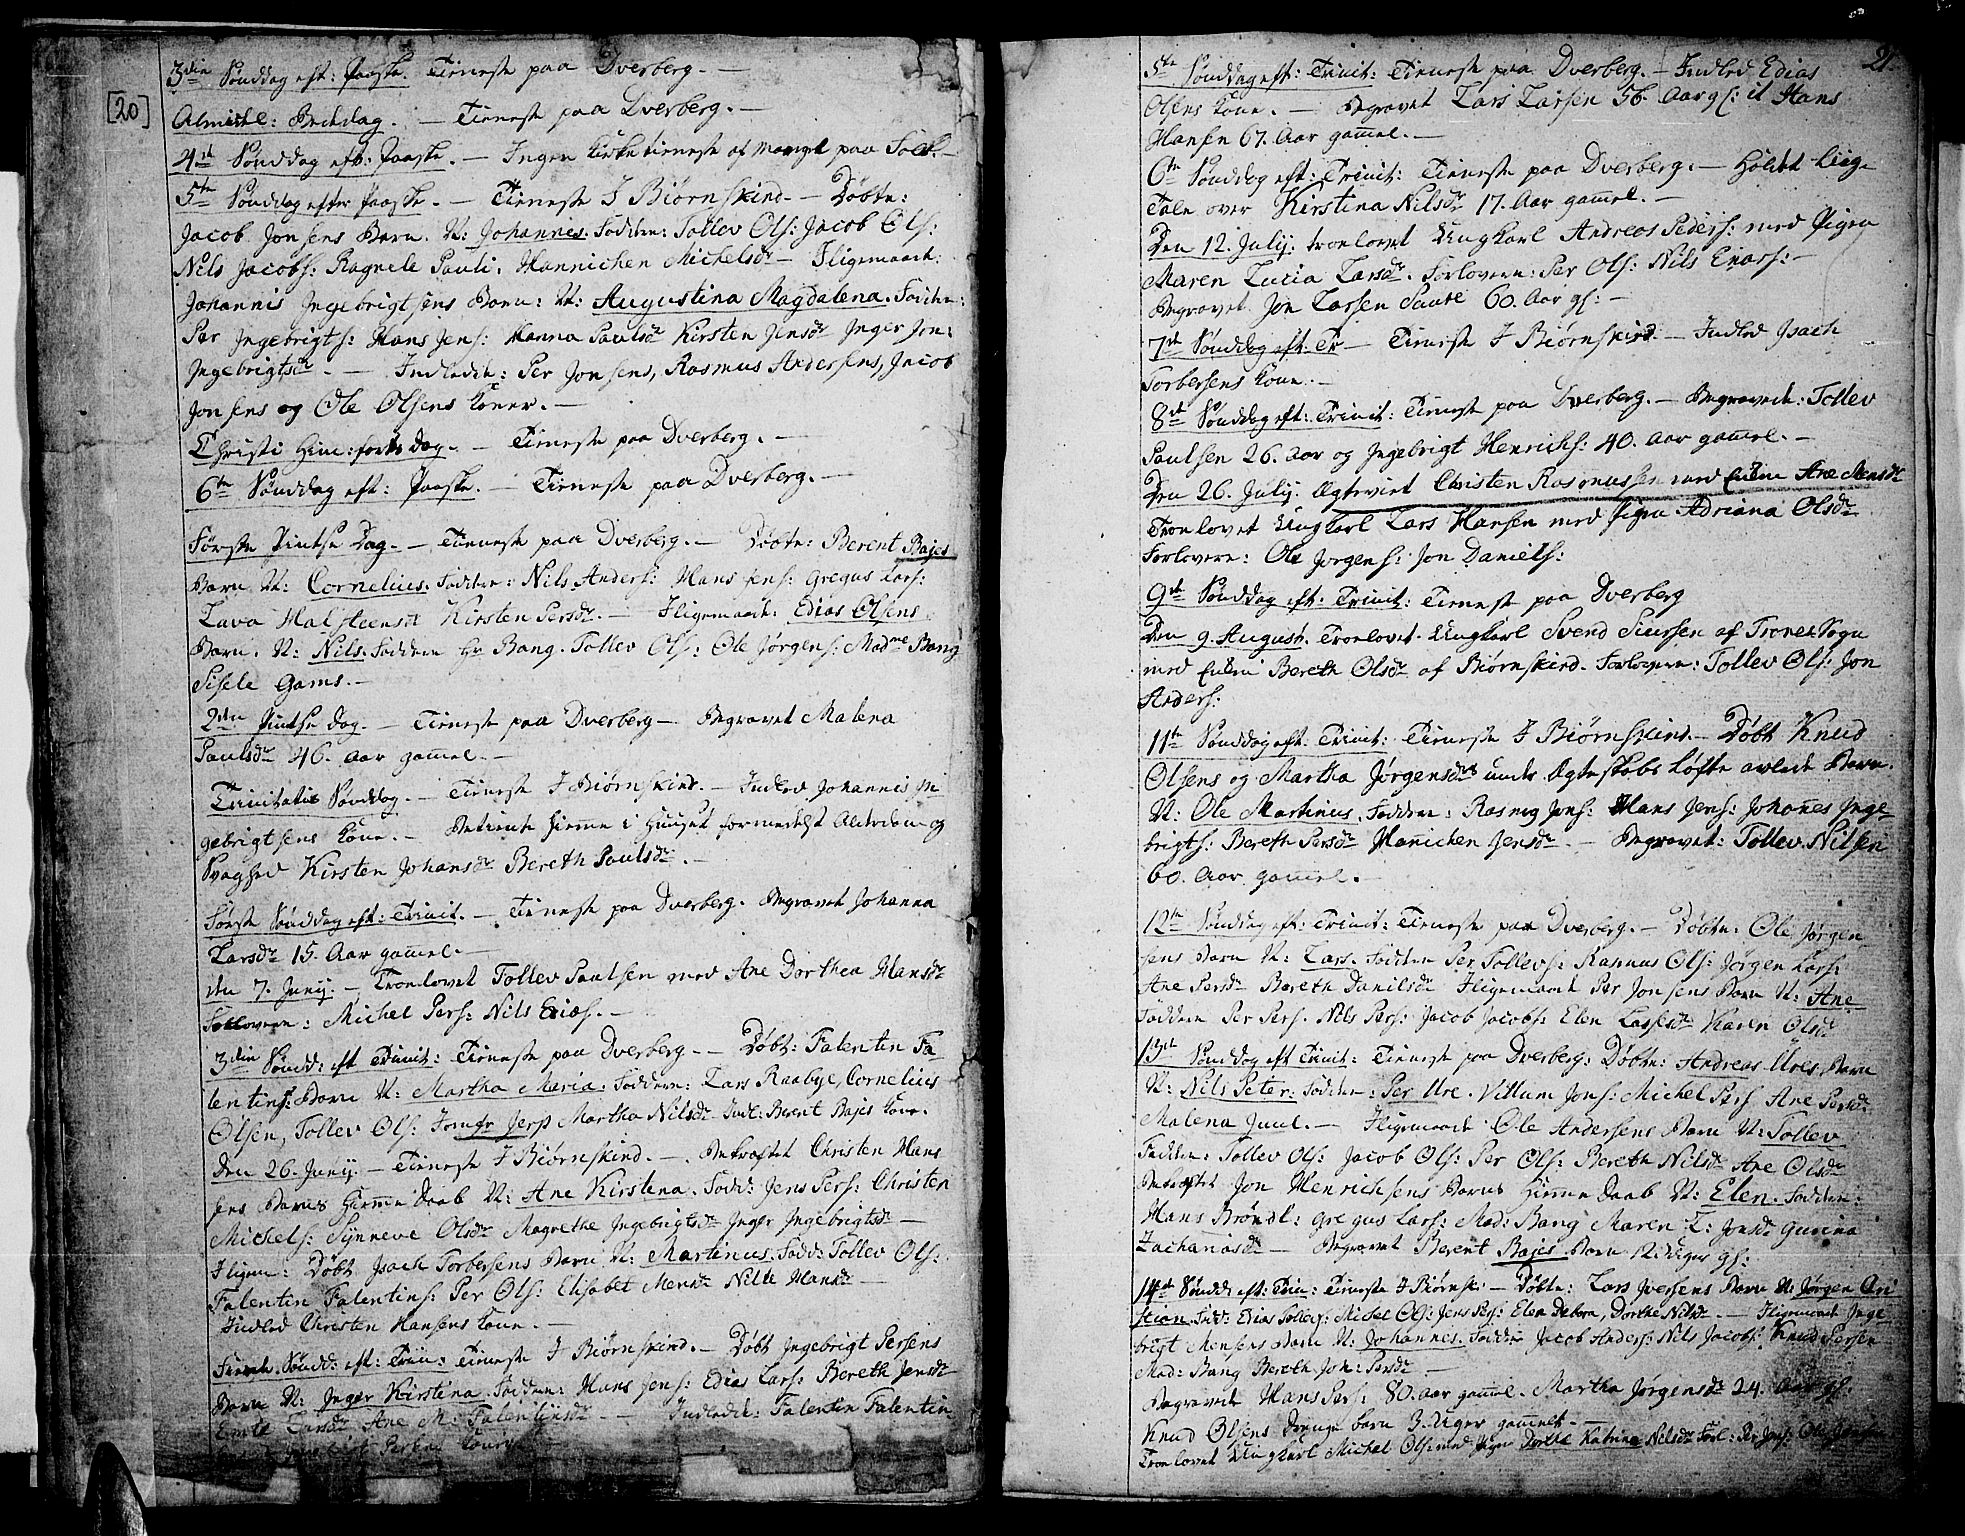 [20]
3die Sønddag eft: Paaske. Tieneste paa Dverberg. —
Almindel: Bededag. — Tieneste paa Dverberg. —
4de Sønddag eft: Paaske. — Ingen Kirketieneste af Mangel paa Folk. —
5te Sønddag efter Paaske. — Tieneste I Biørnskind. — Døbte:
Jacob Jonsens Barn. N: Johannes. Faddere: Tollev Ols: Jacob Ols:
Nils Jacobs: Ragnele Pauli. Hannichen Michelsdr — Iligemaade:
Johannis Ingebrigtsens Barn: N: Augustina Magdalena. Faddere:
Per Ingebrigts: Hans Jens: Hanna Paulsdr Kirsten Jensdr Inger Jon:
Ingebrigtsdr. — Indledde: Per Jonsens, Rasmus Andersens, Jacob
Jonsens og Ole Olsens Koner. —
Christi Him:farts Dag. — Tieneste paa Dverberg. —
6te Sønddag eft: Paaske. — Tieneste paa Dverberg. —
Første Pintse Dag. — Tieneste paa Dverberg. — Døbte: Berent Bajes
Barn N: Cornelius. Faddere: Nils Anders: Hans Jens: Gregus Lars:
Lava Kirsten Persdr. — Iligemaade: Edias Olsens
Barn. N: Nils. Faddere Hr Bang. Tollev Ols: Ole Jørgens: Madme Bang
Sisele Gams. —
2den Pintse Dag. — Tieneste paa Dverberg — Begravet Malena
Paulsdr 46. Aar gamel. —
Trinitatis Sønddag. — Tieneste I Biørnskind. — Indled Johannis In
gebrigtsens Kone. — Betiente Hieme i Huuset formedelst Alderdom og
Svaghed Kirsten Johansdr Bereth Paulsdr. —
Første Sønddag eft: Trinit. — Tieneste paa Dverberg. Begravet Johanna
Larsdr 15. Aar gamel. —
den 7. Junij. — Troelovet Tollev Paulsen med Ane Dorthea Hansdr
Forlovere: Michel Pers: Nils —
3die Søndd: eft Trinit: Tieneste paa Dverberg — Døbt: Falentin Fa-
lentins: Barn N: Martha Maria: Faddere: Lars Raabye, Cornelius
Olsen, Tollev Ols: Jomfr Martha Nilsdr Indl: Berent Bajes Kone.
Den 26. Junij. — Tieneste I Biørnskind. — Bekræftet Christen Hans
sens Barns Hieme Daab N: Ane Kirstina. Fadd: Jens Pers: Christen
Michels: Synneve Olsdr Magrethe Ingebrigtsdr Inger Ingebrigtsdr —
Iligem: Døbt Isach Torbersens Barn N: Martinus: Fadd: Tollev Ols:
Falentin Falentins: Per Ols: Elisabet Nille Hansdr —
Indled Christen Hansens Kone. —
Fierde Søndd: eft: Trin: Tieneste I Biørnskind. — Døbt Ingebrigt Persens
Barn N: Inger Kirstina. Faddere: Hans Jens: Edias Lars: Bereth Jensdr
Larsdr Ane M: Falentinsdr — Indledde: Falentin Falentin
21.
5te Sønddag eft: Trinit: Tieneste paa Dverberg. — Indled Edias
Olsens Kone. — Begravet Lars Larsen 56. Aar gl: it Hans
Hansen 67. Aar gamel. —
6te Sønddag eft: Trinit: Tieneste paa Dverberg. — Holdet Liig-
Tale over Kirstina Nilsdr 17. Aar gamel. —
Den 12. Julij. troelovet Ungkarl Andreas Peders: med Pigen
Maren Lucia Larsdr. Forlovere: Per Ols: Nils Enars: —
Begravet Jon Larsen 60. Aar gl: —
7de Sønddag eft: Tr — Tieneste I Biørnskind. — Indled Isach
Torbersens Kone. —
8de Sønddag eft: Trinit: Tieneste paa Dverberg. — Begravede: Tollev
Paulsen 26. Aar og Ingebrigt Henrichs: 40. Aar gamel. —
Den 26. Julij. Ægteviet Christen Rasmussen med Enken Ane Mensdr
Troelovet Ungkarl Lars Hansen med Pigen Adriana Olsdr.
Forlovere: Ole Jorgens: Jon Daniels:
9de Sønddag eft: Trinit: Tieneste paa Dverberg
Den 9. August. Troelovet Ungkarl Svend Siursen af Trones Sogn
med Enken Bereth Olsdr af Biørnskind. Forlovere: Tollev Ols: Jon
Anders:
11te Sønddag eft: Trinit: Tieneste I Biørnskind. — Døbt Knud
Olsens og Martha Jørgensdrs under Ægteskabs Løfte avlede Barn.
N: Ole Martinus. Faddere: Rasmus Jons: Hans Jens: Johanes Inge-
brigts: Bereth Persdr Hanichen Jensdr. — Begravet: Tollev Nilsen
60. Aar gamel. —
12te Sønddag eft: Trinit: Tieneste paa Dverberg. — Døbte: Ole Jørgen
sens Barn N: Lars. Faddere Per Tollevs: Rasmus Ols: Jørgen Lars:
Ane Persdr Bereth Danilsdr Iligemaade Per Jonsens Barn N: Ane
Faddere Per Pers. Nils Pers: Jacob Jacobs: Elen Lassesdr Karen Olsdr
13de Sønddag eft Trinit: Tieneste paa Dverberg: Døbte: Andreas Ures Barn
N: Nils Peter: Faddere: Per Ure. Villum Jons: Michel Pers Ane Persdr
Malena Juul. — Iligemaade Ole Andersens Barn N: Tollev
Faddere: Tollev Ols: Jacob Ols: Per Ols: Bereth Nilsdr Ane Olsdr
Bekræftet Jon Henrichsens Barns Hieme Daab N: Elen. Faddere:
Hans Brøndl: Gregus Lars: Mad: Bang Maren L: Jonsdr Gurina
Zachariasdr — Begravet Berent Bajes Barn 12 Uger gl:
14de Søndd: eft: Trin: Tieneste I Biørnsk: — Døbte: Lars Iversens Barn N: Jørgen Cri
stian. Fadd: Edias Tollev: Michel Ols: Jens Pers: Elen Debora, Dorthe Nilsdr — Iligemaade Inge
brigt Mensens Barn N: Johannes. Faddere Jacob Anders: Nils Jacobs: Knud Persen
Mad: Bang Bereth Jon: Persdr —
Begravede Hans Pers: 80. Aar gamel. Martha Jørgensdr 24. Aar gl.
Knud Olsens Drenge barn 3. Uger gammel. —
Troelovet Ungkarl Michel Ols: med Pigen Dorthe Katrina Nilsdr Forl: Per Jons: